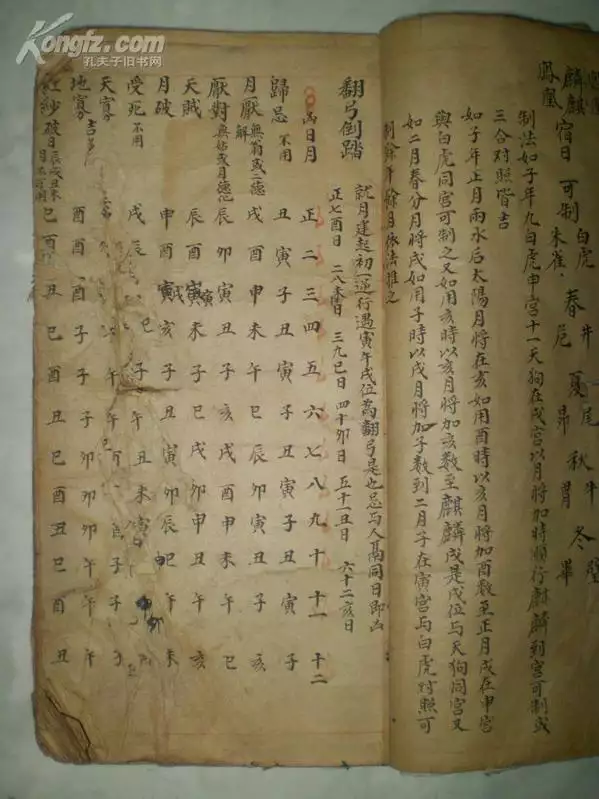 Kongfz.com
孔夫子旧书网
鳳凰
麒麟宿日可制白虎朱雀 春井尾 夏尾昴 秋牛胃 冬壁畢
制法如子年九白虎申宮十一天狗在戌宮以月將加時順行麒麟到宮可制或
三合对照皆吉
如子年正月雨水后太陽月將在亥如用酉時以亥月將加酉数至正月戌在申宮
與白虎同宮可制之又如用亥時以亥月將加亥数至麒麟戌是戌位与天狗同宮又
如二月春分月將戌如用子時以戌月將加子数到二月子在寅宮与白虎对照可
制餘年餘月依法推之
翻弓倒踏
就月建起初一逆行遇寅午戌位為翻弓是也忌与人髙同日即凶
正七酉日 二八未日 三九巳日 四十卯日 五十一丑日 六十二亥日
凶日月 正 二 三 四 五 六 七 八 九 十 十一 十二
歸忌 不用 丑 寅 子 丑 寅 子 丑 寅 子 丑 寅 子
月厭 無翁或二德解 戌 酉 申 未 午 巳 辰 卯 寅 丑 子 亥
厭對 無姑或月德化 辰 卯 寅 丑 子 亥 戌 酉 申 未 午 巳
天賊 辰 酉 寅 未 子 巳 戌 卯 申 丑 午 亥
月破 申 酉 戌 亥 子 丑 寅 卯 辰 巳 午 未
受死 不用 戌 辰 巳 子 午 丑 未 寅 申 卯
天寡
地寡 酉 酉 子 子 子 卯 卯 卯 午 午 午
紅紗 破日辰戌丑未月 巳 酉 丑 巳 酉 丑 巳 酉 丑 巳 酉 丑